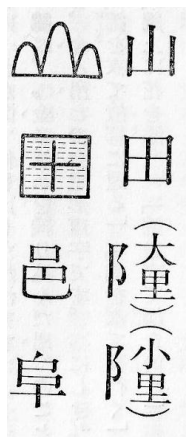 山 田 阝(大里) 阝(小里)
邑 阜